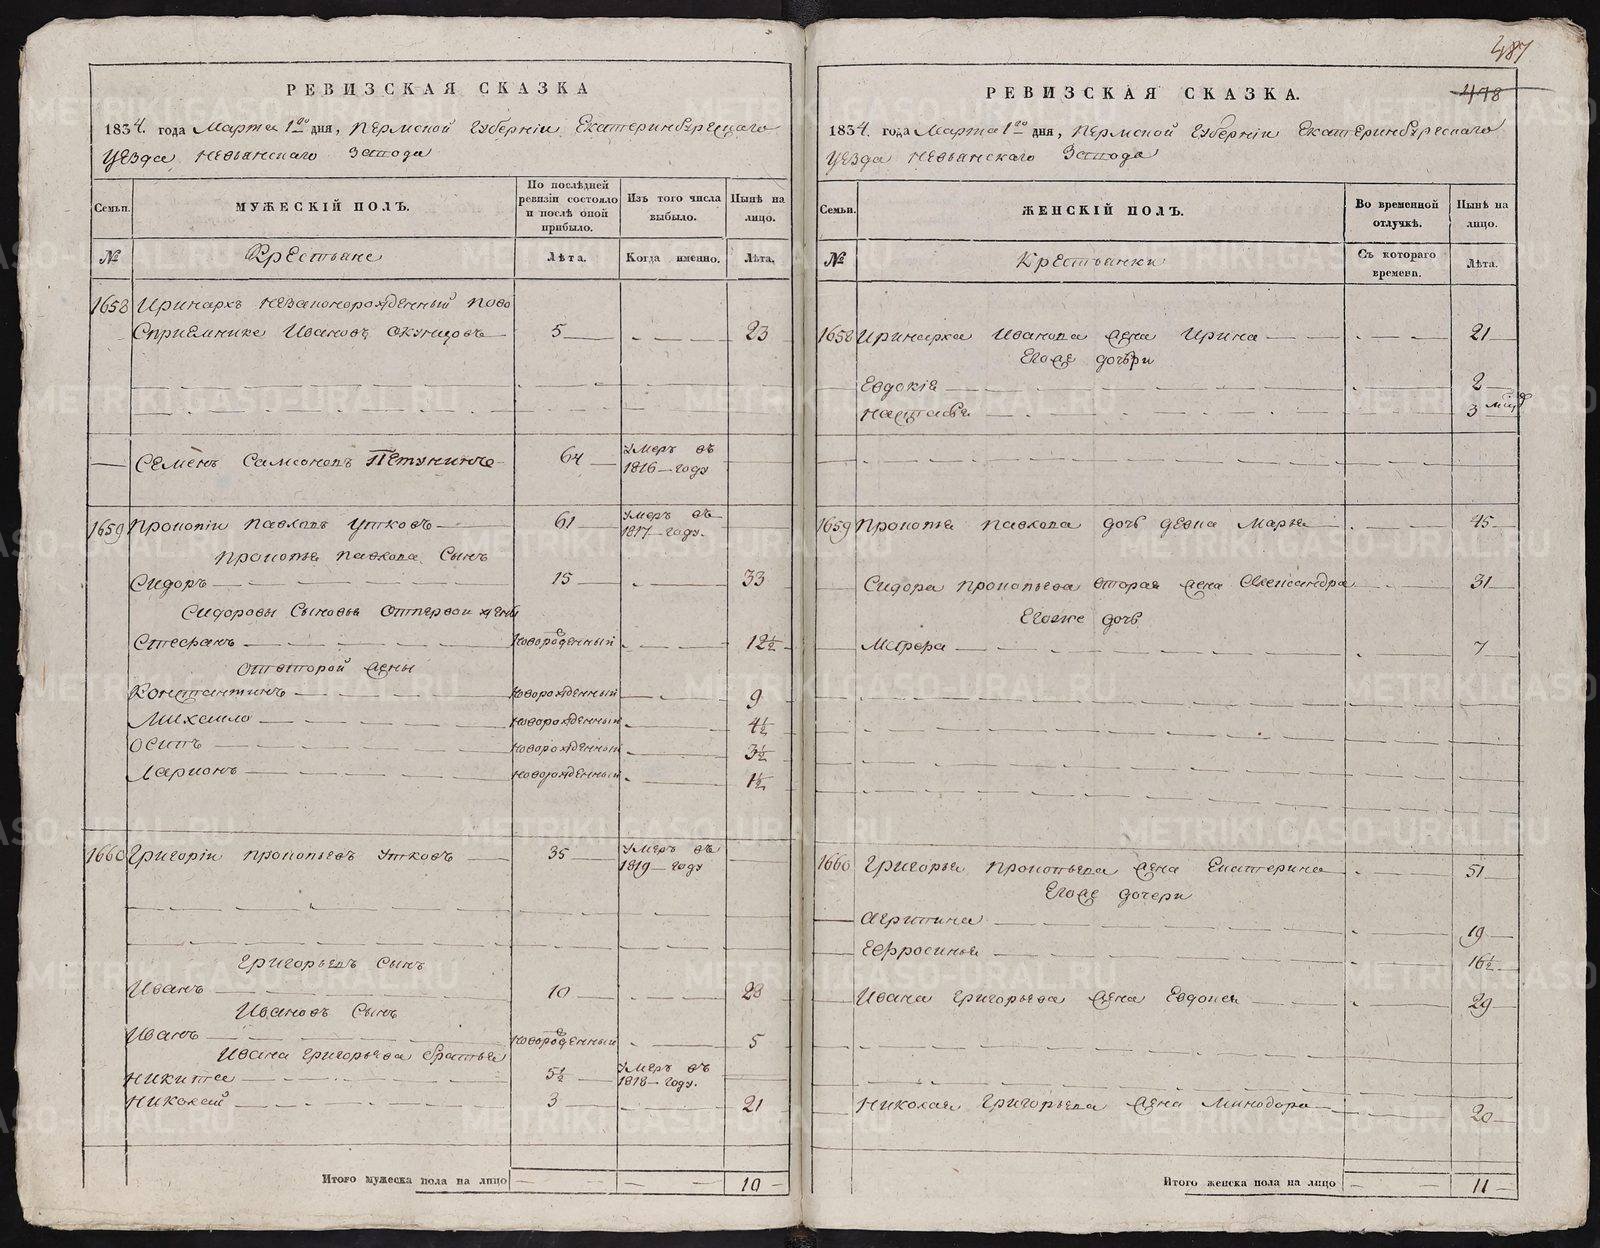 РЕВИЗСКАЯ СКАЗКА
1834. года Марта 1го дня, Пермской Губерніи Екатеринбургскаго
уезда Невьянскаго Завода
Семьи.
МУЖЕСКІЙ ПОЛЪ.
По послѣдней ревизіи состояло и послѣ оной прибыло.
Изъ того числа выбыло.
Нынѣ на лицо.
№
Крестьяне
Лѣта.
Когда именно.
Лѣта.
1658 Иринархъ незаконорожденный по во
сприемнике Ивановъ 5 23
Семенъ Самсоновъ Петунинъ 64 умеръ въ
1816 году
1659 Прокопіи Павловъ Утковъ 61 умеръ въ
1817 году.
Прокопья Павлова Сынъ
Сидоръ 15 33
Сидоровы Сыновья от первои жены
Стефанъ новорожденный 12½
от второй жены
Константинъ новорожденный 9
Михаило новорожденный 4½
Осипъ новорожденный 3½
Ларионъ новорожденный 1½
1660 Григоріи Прокопьевъ Утковъ 35 умеръ въ
1819 году
Григорьевъ Сынъ
Иванъ 10 28
Ивановъ Сынъ
Иванъ новорожденный 5
Ивана Григорьева братья
Никита 5½ умеръ въ
1818 году.
Николай 3 21
Итого мужеска пола на лицо 10
487
498
РЕВИЗСКАЯ СКАЗКА.
1834. года Марта 1го дня, Пермской Губерніи Екатеринбургскаго
уезда Невьянскаго Завода
Семьи.
ЖЕНСКІЙ ПОЛЪ.
Во временной отлучкѣ.
Нынѣ на лицо.
№
Крестьянки
Съ котораго времени.
Лѣта.
1658 Иринарха Иванова жена Ирина 21
Егоже дочьри
Евдокія 2
Настасья 3 мѣс
1659 Прокопья Павлова дочь девка Марья 45
Сидора Прокопьева вторая жена Александра 31
Егоже дочь
Марфа 7
1660 Григорья Прокопьева жена Екатерина 51
Егоже дочери
Агрипина 19
Ефросинья 16½
Ивана Григорьева жена Евдокея 29
Николая Григорьева жена Минодора 20
Итого женска пола на лицо 11
METRIKI.GASO-URAL.RU